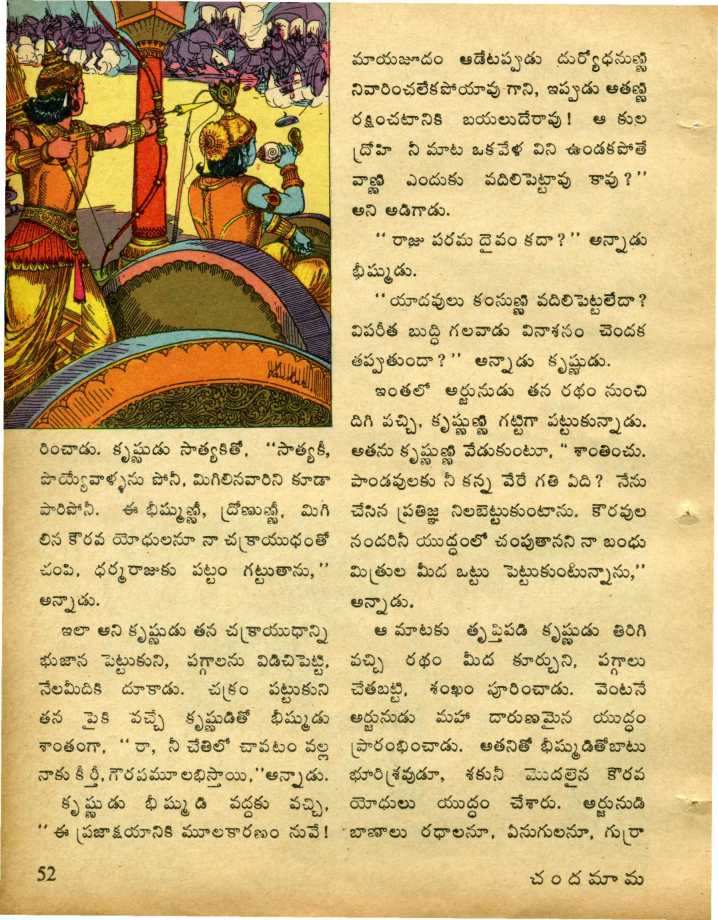 రించాడు. కృష్ణుడు సాత్యకితో, “సాత్యకీ,
పొయ్యేవాళ్ళను పోనీ, మిగిలినవారిని కూడా
పారిపోనీ. ఈ భీష్ముణ్ణీ, ద్రోణుణ్ణీ, మిగి
లిన కౌరవ యోధులనూ నా చక్రాయుధంతో
చంపి, ధర్మరాజుకు పట్టం గట్టుతాను,”
అన్నాడు.
ఇలా అని కృష్ణుడు తన చక్రాయుధాన్ని
భుజాన పెట్టుకుని, పగ్గాలను విడిచిపెట్టి,
నేలమీదికి దూకాడు. చక్రం పట్టుకుని
తన పైకి వచ్చే కృష్ణుడితో భీష్ముడు
శాంతంగా, “రా, నీ చేతిలో చావటం వల్ల
నాకు కీర్తీ, గౌరవమూ లభిస్తాయి,” అన్నాడు.
కృష్ణుడు భీష్ముడి వద్దకు వచ్చి,
“ఈ ప్రజాక్షయానికి మూలకారణం నువే!
మాయజూదం ఆడేటప్పుడు దుర్యోధనుణ్ణి
నివారించలేకపోయావు గాని, ఇప్పుడు అతణ్ణి
రక్షించటానికి బయలుదేరావు! ఆ కుల
ద్రోహి నీ మాట ఒకవేళ విని ఉండకపోతే
వాణ్ణి ఎందుకు వదిలిపెట్టావు కావు?”
అని అడిగాడు.
“రాజు పరమ దైవం కదా?” అన్నాడు
భీష్ముడు.
“యాదవులు కంసుణ్ణి వదిలిపెట్టలేదా?
విపరీత బుద్ధి గలవాడు వినాశనం చెందక
తప్పుతుందా?” అన్నాడు కృష్ణుడు.
ఇంతలో అర్జునుడు తన రథం నుంచి
దిగి వచ్చి, కృష్ణుణ్ణి గట్టిగా పట్టుకున్నాడు.
అతను కృష్ణుణ్ణి వేడుకుంటూ, “శాంతించు.
పాండవులకు నీ కన్న వేరే గతి ఏది? నేను
చేసిన ప్రతిజ్ఞ నిలబెట్టుకుంటాను. కౌరవుల
నందరినీ యుద్ధంలో చంపుతానని నా బంధు
మిత్రుల మీద ఒట్టు పెట్టుకుంటున్నాను,”
అన్నాడు.
ఆ మాటకు తృప్తిపడి కృష్ణుడు తిరిగి
వచ్చి రథం మీద కూర్చుని, పగ్గాలు
చేతబట్టి, శంఖం పూరించాడు. వెంటనే
అర్జునుడు మహా దారుణమైన యుద్ధం
ప్రారంభించాడు. అతనితో భీష్ముడితోబాటు
భూరిశ్రవుడూ, శకునీ మొదలైన కౌరవ
యోధులు యుద్ధం చేశారు. అర్జునుడి
బాణాలు రథాలనూ, ఏనుగులనూ, గుర్రా
52
చందమామ